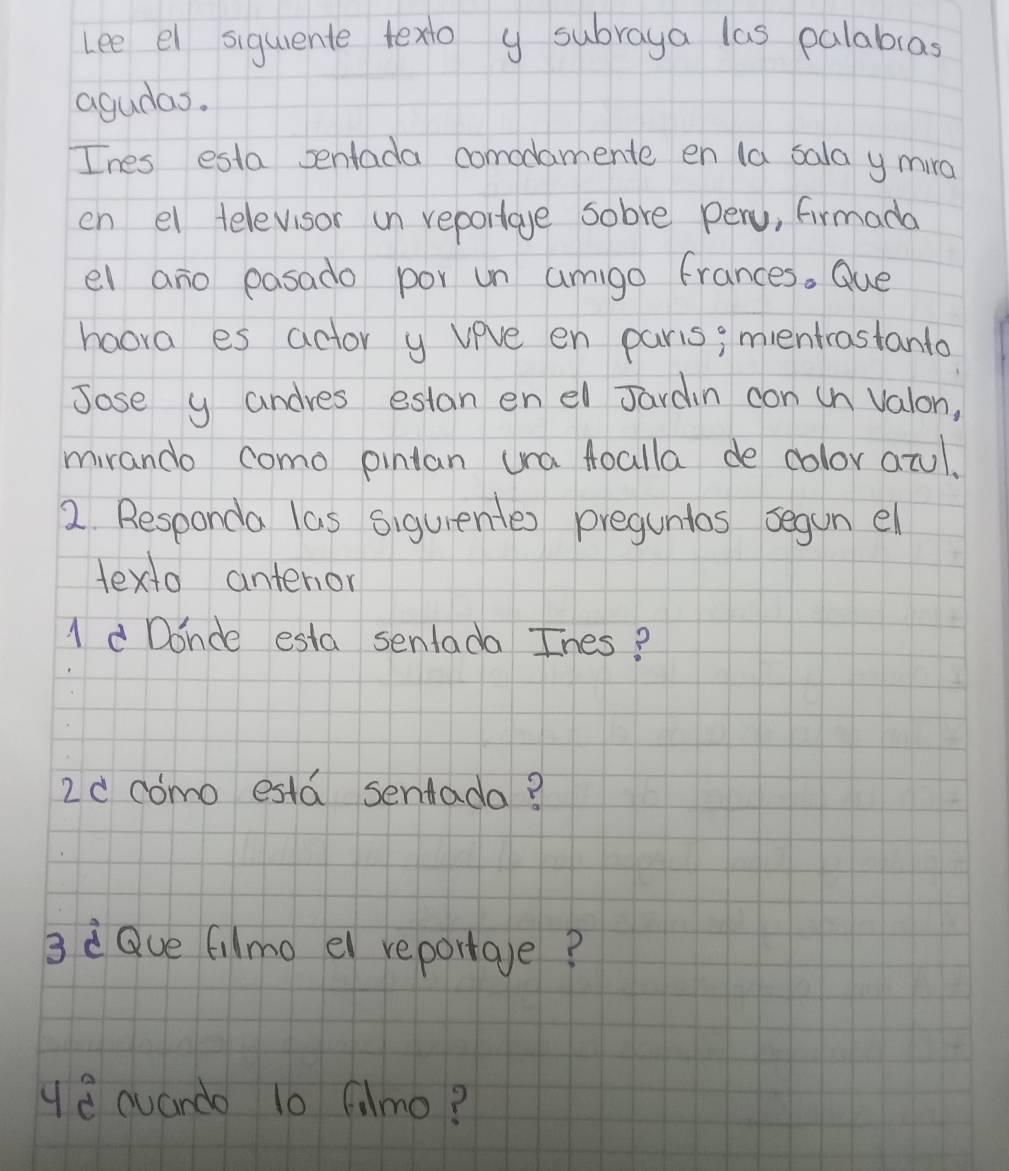 Lee el siguiente texto y subraya las palabras
agudas.
Ines esta sentada comodamente en la sala y mira
en el televisor un reportaje sobre peru, firmada
el año pasado por un amigo frances. Que
haora es actor y vive en paris; mientrastanto
Jose y andres estan en el Jardin con un valon,
mirando como pintan una toalla de color azul.
2. Responda las siguientes preguntas segun el
texto anterior
1 ¿Dónde esta sentada Ines?
2 ¿cómo está sentada?
3 ¿Que filmo el reportaje?
4 ¿cuando lo filmo?